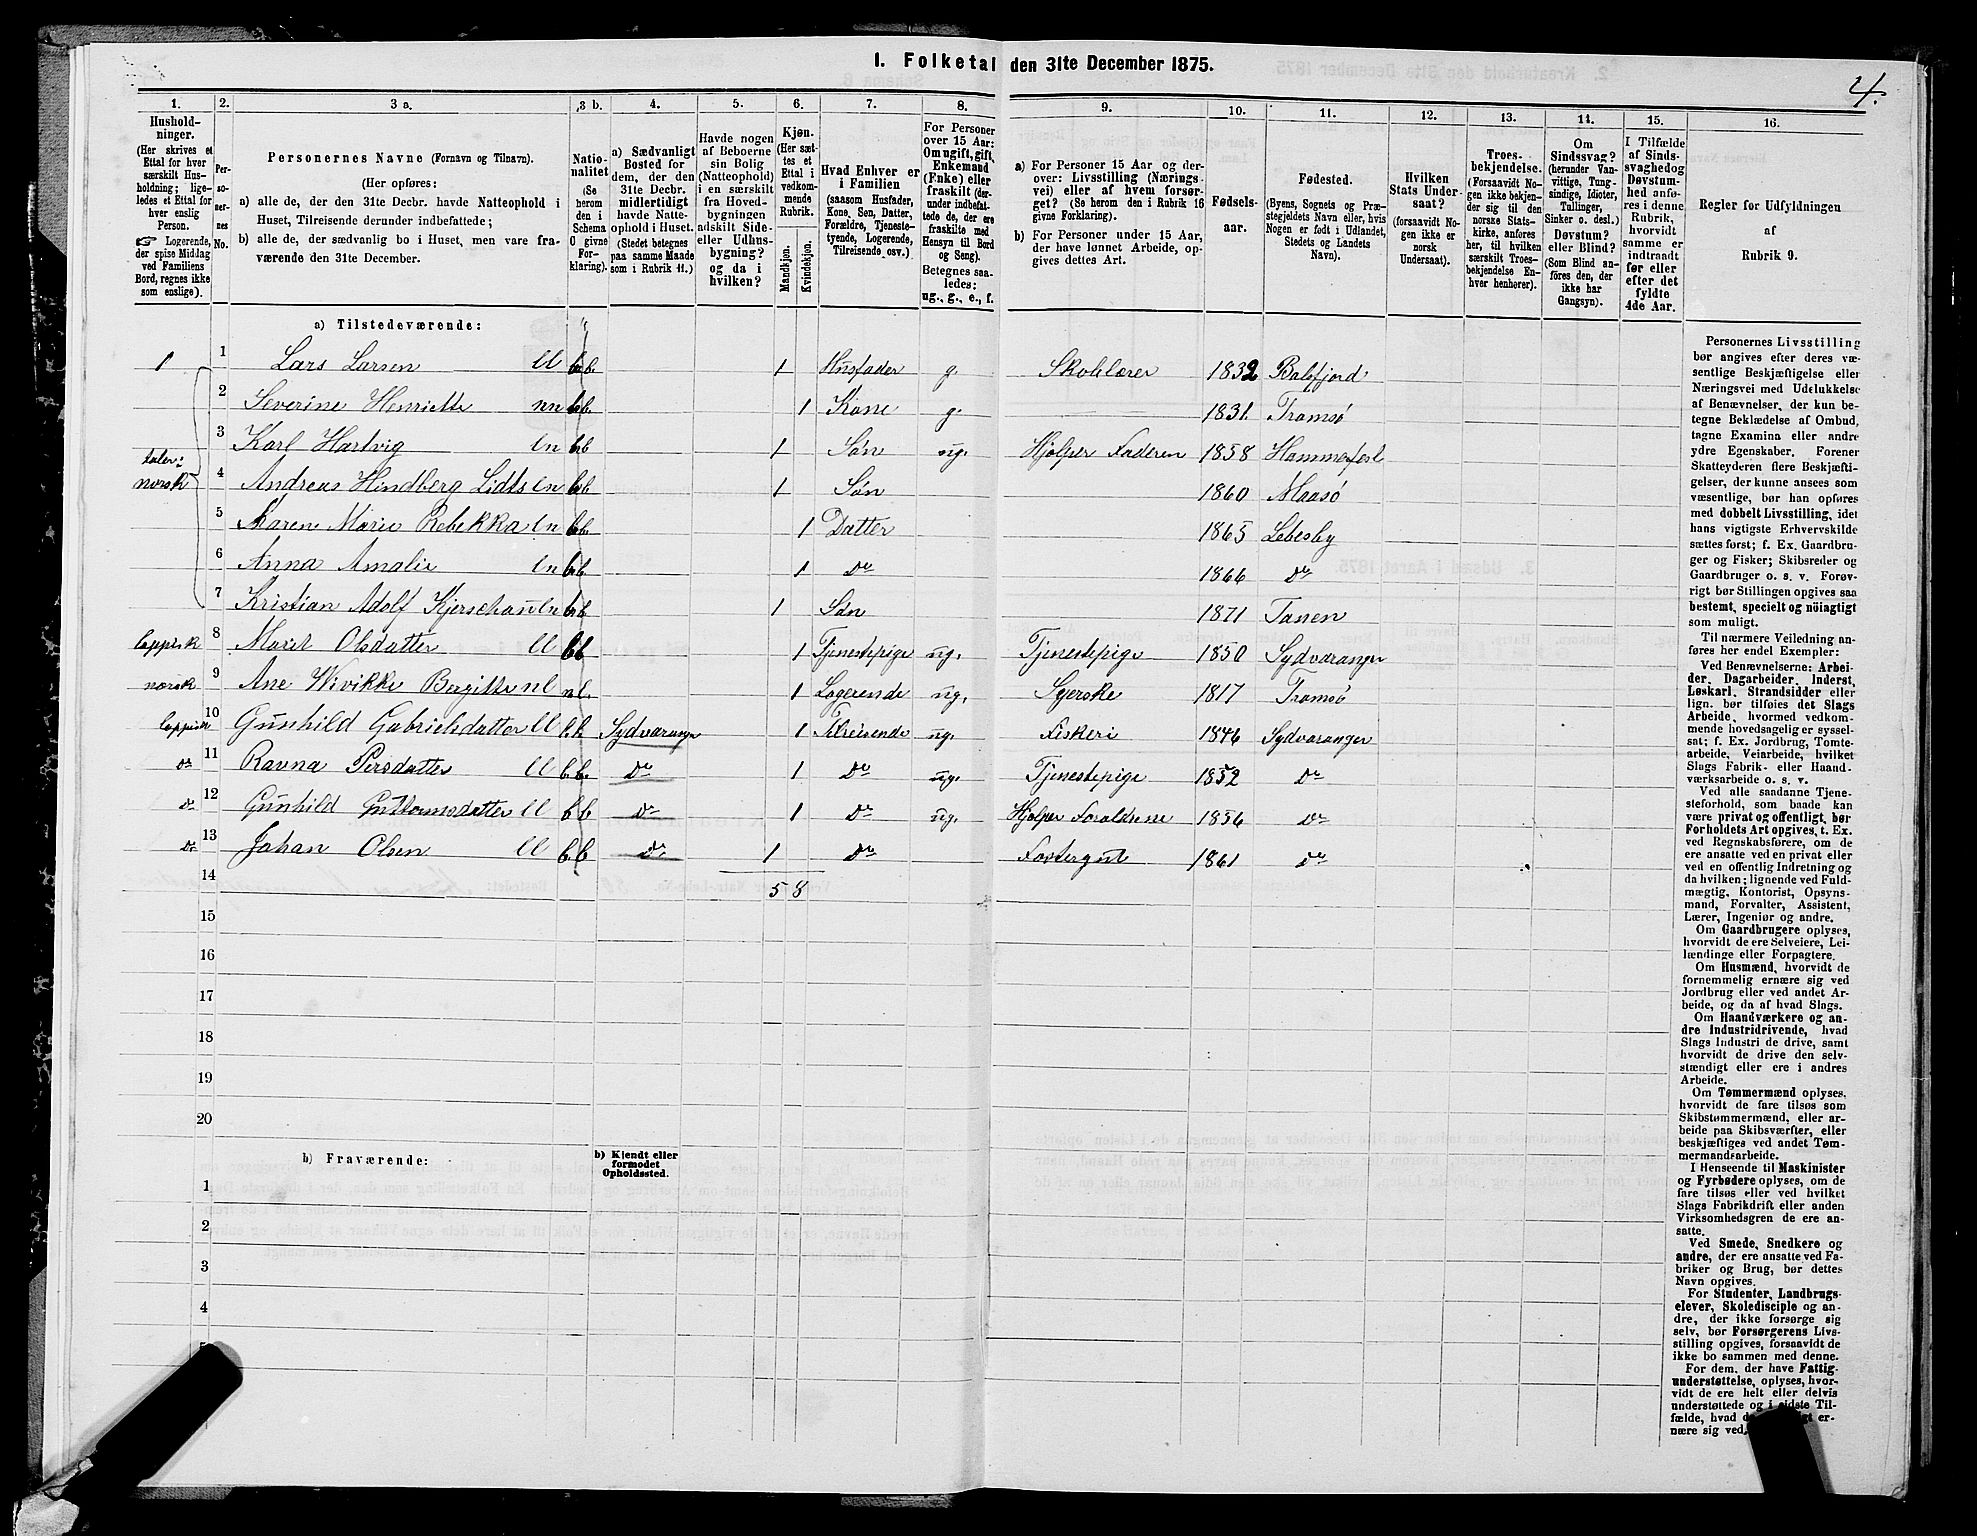 1. Folketal den 31te December 1875.
4.
1. 2. 3 a. 3 b. 4. 5. 6. 7. 8. 9. 10. 11. 12. 13. 14. 15. 16.
Hushold-
ninger.
(Her skrives et
Ettal for hver
særskilt Hus-
holdning; lige-
ledes et Ettal for
hver enslig
Person.
☞ Logerende,
der spise Middag
ved Familiens
Bord, regnes ikke
som enslige).
Per-
so-
ner-
nes
No.
Personernes Navne (Fornavn og Tilnavn).
(Her opføres:
a) alle de, der den 31te Decbr. havde Natteophold i
Huset, Tilreisende derunder indbefattede;
b) alle de, der sædvanlig bo i Huset, men vare fra-
værende den 31te December.
Natio-
nalitet
(Se
herom
den i
Schema
O givne
For-
klaring).
a) Sædvanligt
Bosted for
dem, der den
31te Decbr.
midlertidigt
havde Natte-
ophold i Huset.
(Stedet betegnes
paa samme Maade
som i Rubrik 11.)
Havde nogen
af Beboerne
sin Bolig
(Natteophold)
i en særskilt
fra Hoved-
bygningen
adskilt Side-
eller Udhus-
bygning?
og da i
hvilken?
Kjøn.
(Her sæt-
tes et
Ettal i
vedkom-
mende
Rubrik.
Mandkjøn.
Kvindekjøn.
Hvad Enhver er
i Familien
(saasom Husfader,
Kone, Søn, Datter,
Forældre, Tjeneste-
tyende, Logerende,
Tilreisende osv.)
For Personer
over 15 Aar:
Om ugift, gift,
Enkemand
(Enke) eller
fraskilt (der-
under indbefat-
tede de, der ere
fraskilte med
Hensyn til Bord
og Seng).
Betegnes saa-
ledes:
ug., g., e., f.
a) For Personer 15 Aar og der-
over: Livsstilling (Nærings-
vei) eller af hvem forsør-
get? (Se herom den i Rubrik 16
givne Forklaring).
b) For Personer under 15 Aar,
der have lønnet Arbeide, op-
gives dettes Art.
Fødsels-
aar.
Fødested.
(Byens, Sognets og Præ-
stegjeldets Navn eller, hvis
Nogen er født i Udlandet,
Stedets og Landets
Navn).
Hvilken
Stats Under-
saat?
(forsaavidt No-
gen ikke er
norsk
Undersaat).
Troes-
bekjendelse.
(Forsaavidt No-
gen ikke bekjen-
der sig til den
norske Stats-
kirke, anføres
her, til hvilken
særskilt Troes-
bekjendelse En-
hver henhører).
Om
Sindssvag?
(herunder Van-
vittige, Tung-
sindige, Idioter,
Tullinger,
Sinker o. desl.)
Døvstum?
eller Blind?
(Som Blind an-
føres den, der
ikke har
Gangsyn).
I Tilfælde
af Sinds-
svaghed og
Døvstum-
hed anfø-
res i denne
Rubrik,
hvorvidt
samme er
indtraadt
før eller
efter det
fyldte
4de Aar.
Regler for Udfyldningen
af
Rubrik 9.
a) Tilstedeværende:
1 1 Lars Larsen ll b.b. 1 Husfader g. Skolelærer 1832 Balsfjord
2 Severine Henriette nn b.b. 1 Kone g. 1831. Tromsø
3 Karl Hartvig ln b.b 1 Søn ug. Hjælper Faderen 1858 Hammerfest
taler:
norsk 4 Andreas Hindberg Lidts ln b.b 1 Søn 1860 Maasø
5 Maren Marie Rebekka ln b.b. 1 Datter 1865 Lebesby
6 Anna Amalie ln b.b. 1 do 1866 do
7 Kristian Adolf Kjerschau ln b.b 1 Søn 1871 Tanen
lappisk 8 Marit Olsdatter ll b.b 1 Tjenestepige ug. Tjenestepige 1850 Sydvaranger
norsk 9 Ane Wivikke Bergitte nl nl. 1 Logerende ug. Syerske 1817 Tromsø
lappisk 10 Gunhild Gabrielsdatter ll b.b. Sydvaranger 1 Tilreisende ug. Fiskeri 1846 Sydvaranger
do 11 Ravna Persdatter ll b.b. do 1 do ug. Tjenestepige 1852 do
do 12 Gunhild Guttormsdatter ll b.b do 1 do ug. Hjælper Forældrene 1856 do
do 13 Johan Olsen ll b.b do 1 do Fostergut 1861 do
14 5 8
15
16
17
18
19
20
b) Fraværende:
b) Kjendt eller
formodet
Opholdssted.
1
2
3
4
Personernes Livsstilling
bør angives efter deres væ-
sentlige Beskjæftigelse eller
Næringsvei med Udelukkelse
af Benævnelser, der kun be-
tegne Beklædelse af Ombud,
tagne Examina eller andre
ydre Egenskaber. Forener
Skatteyderen flere Beskjæfti-
gelser, der kunne ansees som
væsentlige, bør han opføres
med dobbelt Livsstilling, idet
hans vigtigste Erhvervskilde
sættes først; f. Ex. Gaardbru-
ger og Fisker; Skibsreder og
Gaardbruger o. s. v. Forøv-
rigt bør Stillingen opgives saa
bestemt, specielt og nöiagtigt
som muligt.
Til nærmere Veiledning an-
føres her endel Exempler:
Ved Benævnelserne: Arbei-
der, Dagarbeider, Inderst,
Løskarl, Strandsidder eller
lign. bør tilføies det Slags
Arbeide, hvormed vedkom-
mende hovedsagelig er syssel-
sat; f. Ex. Jordbrug, Tomte-
arbeide, Veiarbeide, hvilket
Slags Fabrik- eller Haand-
værksarbeide o. s. v.
Ved alle saadanne Tjene-
steforhold, som baade kan
være privat og offentligt, bør
Forholdets Art opgives, t. Ex.
ved Regnskabsførere, om de
ere ansatte ved en privat eller
ved en offentlig Indretning og
da hvilken; lignende ved Fuld-
mægtig, Kontorist, Opsyns-
mand, Forvalter, Assistent,
Lærer, Ingeniør og andre.
Om Gaardbrugere oplyses,
hvorvidt de ere Selveiere, Lei-
lændinge eller Forpagtere.
Om Husmænd, hvorvidt de
fornemmelig ernære sig ved
Jordbrug eller ved andet Ar-
beide, og da af hvad Slags.
Om Haandværkere og an-
dre Industridrivende, hvad
Slags Industri de drive, samt
hvorvidt de drive den selv-
stændigt eller ere i andres
Arbeide.
Om Tømmermænd oplyses,
hvorvidt de fare tilsøs som
Skibstømmermænd, eller ar-
beide paa Skibsværfter, eller
beskjæftiges ved andet Tøm-
mermandsarbeide.
I Henseende til Maskinister
og Fyrbødere oplyses, om de
fare tilsøs eller ved hvilket
Slags Fabrikdrift eller anden
Virksomhedsgren de ere an-
satte.
Ved Smede, Snedkere og
andre, der ere ansatte ved Fa-
briker og Brug, bør dettes
Navn opgives.
For Studenter, Landbrugs-
elever, Skoledisciple og an-
dre, der ikke forsørge sig
selv, bør Forsørgerens Livs-
stilling opgives, forsaavidt de
ikke bo sammen med denne.
For dem, der have Fattig-
understøttelse, oplyses, hvor-
vidt de ere helt eller delvis
understøttede og i sidste Til-
fælde, hvad er-
nære sig ved.